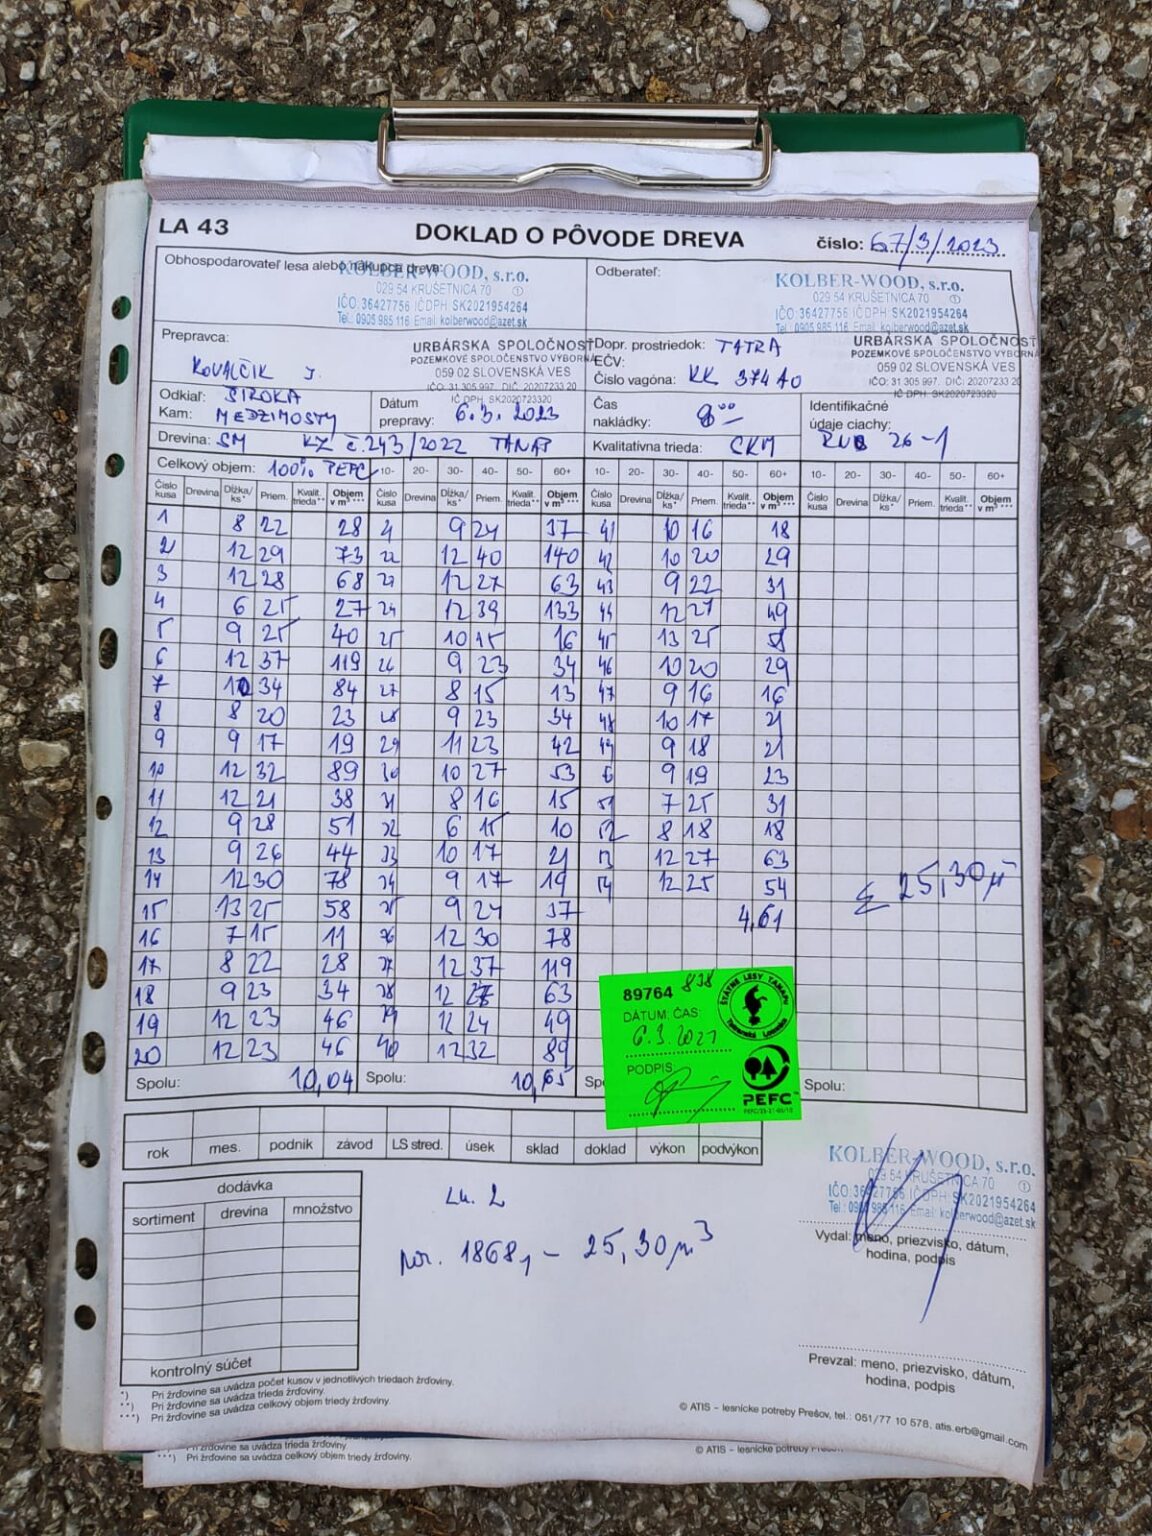 LA 43
DOKLAD O PÔVODE DREVA
číslo: 67/3/2023
Obhospodarovateľ lesa alebo nákupca dreva:
KOLBER-WOOD, s.r.o.
029 54 KRUŠETNICA 70
IČO: 36427756 IČDPH SK2021954264
Tel.: 0905 985 116 Email: kolberwood@azet.sk
Odberateľ:
KOLBER-WOOD, s.r.o.
029 54 KRUŠETNICA 70
IČO: 36427756 IČDPH SK2021954264
Tel.: 0905 985 116 Email: kolberwood@azet.sk
Prepravca:
KOVALČIK J.
URBÁRSKA SPOLOČNOSŤ
POZEMKOVÉ SPOLOČENSTVO VÝBORNÁ
059 02 SLOVENSKÁ VES
IČO: 31 305 997, DIČ: 20207233 20
IČ DPH: SK2020723320
Dopr. prostriedok: TATRA
EČV:
Číslo vagóna: KK 374 AO
URBÁRSKA SPOLOČNOSŤ
POZEMKOVÉ SPOLOČENSTVO VÝBORNÁ
059 02 SLOVENSKÁ VES
IČO: 31 305 997, DIČ: 20207233 20
IČ DPH: SK2020723320
Odkiaľ: ŠIROKÁ
Kam: MEDZIMOSTY
Dátum prepravy: 6.3.2023
Čas nakládky: 8 00
Identifikačné údaje ciachy: 26-1
Drevina: SM KZ č.243/2022 TANAP
Kvalitatívna trieda: CKM
Celkový objem: 100% PEFC 10- 20- 30- 40- 50- 60+ 10- 20- 30- 40- 50- 60+ 10- 20- 30- 40- 50- 60+
Číslo kusa Drevina Dĺžka/ks* Priem. Kvalit. trieda** Objem v m³*** Číslo kusa Drevina Dĺžka/ks* Priem. Kvalit. trieda** Objem v m³*** Číslo kusa Drevina Dĺžka/ks* Priem. Kvalit. trieda** Objem v m³*** Číslo kusa Drevina Dĺžka/ks* Priem. Kvalit. trieda** Objem v m³***
1 8 22 28 21 9 24 37 41 10 16 18
2 12 29 73 22 12 40 140 42 10 20 29
3 12 28 68 23 12 27 63 43 9 22 31
4 6 25 27 24 12 39 133 44 12 27 49
5 9 25 40 25 10 15 16 45 13 25 58
6 12 37 119 26 9 23 34 46 10 20 29
7 10 34 84 27 8 15 13 47 9 16 16
8 8 20 23 28 9 23 34 48 10 17 21
9 9 17 19 29 11 23 42 49 9 18 21
10 12 32 89 30 10 27 53 9 19 23
11 12 21 38 31 8 16 15 51 7 25 31
12 9 28 51 32 6 15 10 52 8 18 18
13 9 26 44 33 10 17 21 53 12 27 63
14 12 30 78 34 9 17 19 54 12 25 54
Σ 25,30 m³
15 13 25 58 35 9 24 37 4,61
16 7 15 11 36 12 30 78
17 8 22 28 37 12 37 119
18 9 23 34 38 12 27 63
19 12 23 46 39 12 24 49
20 12 23 46 40 12 32 89
Spolu: 10,04 Spolu: 10,65 Sp Spolu:
89764 838
DÁTUM, ČAS:
6.3.2021
PODPIS:
ŠTÁTNE LESY TANAPU
Tatranská Lomnica
PEFC
rok mes. podnik závod LS stred. úsek sklad doklad výkon podvýkon
dodávka
sortiment drevina množstvo
kontrolný súčet
25,30 m³
KOLBER-WOOD, s.r.o.
029 54 KRUŠETNICA 70
IČO: 36427756 IČDPH: SK2021954264
Tel.: 0905 985 116 Email: kolberwood@azet.sk
Vydal: meno, priezvisko, dátum,
hodina, podpis
Prevzal: meno, priezvisko, dátum,
hodina, podpis
*) Pri žrďovine sa uvádza počet kusov v jednotlivých triedach žrďoviny.
**) Pri žrďovine sa uvádza trieda žrďoviny.
***) Pri žrďovine sa uvádza celkový objem triedy žrďoviny.
© ATIS – lesnícke potreby Prešov, tel.: 051/77 10 578, atis.erb@gmail.com
Pri žrďovine sa uvádza trieda žrďoviny.
***) Pri žrďovine sa uvádza celkový objem triedy žrďoviny.
© ATIS – lesnícke potreby